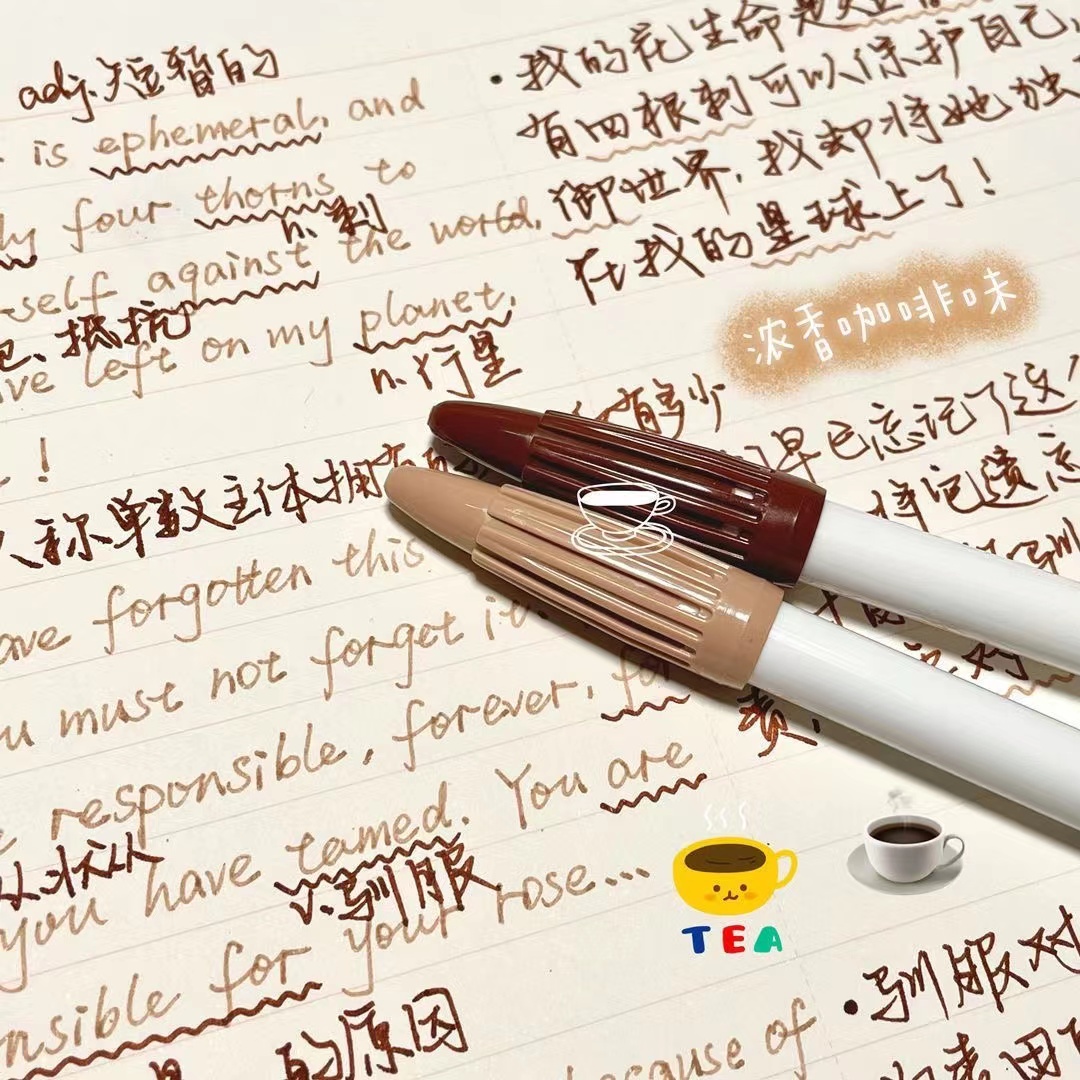 adj. 短暂的
is ephemeral, and
four thorns to
n. 刺
self against the world,
抵抗
left on my planet,
n. 行星
!
人称单数主体拥有
forgotten this
must not forget it.
responsible, forever, for
you have tamed. You are
v. 驯服
your rose...
nsible for
的原因
because of
• 我的花生命是短
有四根刺可以保护自己,
御世界,我却将她独
在我的星球上了!
浓香咖啡味
有多少
早已忘记了这
将记
责,
TEA
• 驯服对